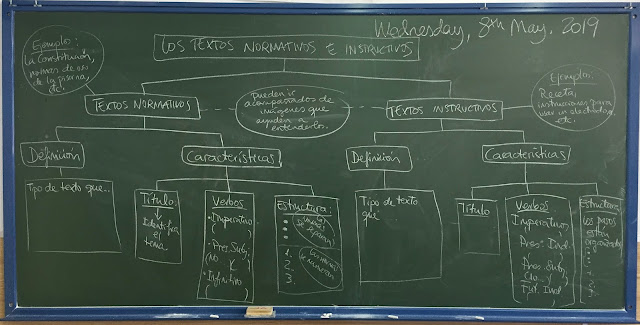 Wednesday, 8th May. 2019
LOS TEXTOS NORMATIVOS E INSTRUCTIVOS
Ejemplos:
La Constitución,
normas de uso
de la piscina,
etc.
TEXTOS NORMATIVOS
Pueden ir
acompañados de
imágenes que
ayuden a
entenderlos.
TEXTOS INSTRUCTIVOS
Ejemplos:
Receta,
instrucciones para
usar un electrodom.
etc.
Definición
Tipo de texto que...
Características
Título:
Identifica
el
tema
Verbos
• Imperativo
( )
• Pres. Subj.
(No )
• Infinitivo
( )
Estructura:
se
1.
2.
3.
se numeran
Definición
Tipo de texto
que...
Características
Título
Verbos
Imperativo
( )
Pres. Ind.
( )
Pres. Subj.
( )
Fut. Ind.
( )
Estructura
Los pasos
están
organizados
1.
2.
3.